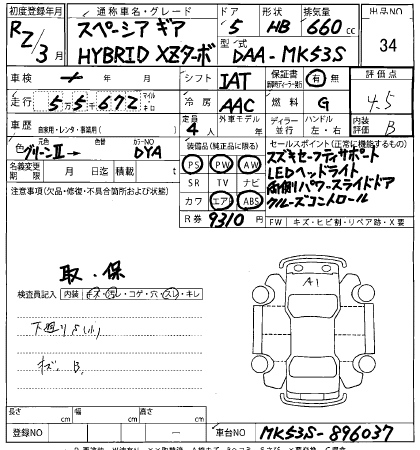 初度登録年月 通称車名・グレード ドア 形状 排気量 出品NO
R2/3月 スペーシア ギア 5 HB 660cc 34
HYBRID XZターボ 型式 DAA-MK53S
車検 年 月 シフト IAT 保証書 有 無 評価点
走行 55672 マイル キロ 冷房 AAC 燃料 G 4.5
車歴 自家用・レンタ・事業用( ) 定員 4人 外車モデル 年 ディーラー 並行 ハンドル 左・右 内装評価 B
色 グリーンII→ 色替 カラーNO DYA 装備品(純正品に限る) セールスポイント(正常に機能するもの)
名義変更期限 月 日迄 積載 t PS PW AW スズキセーフティサポート
注意事項(欠品・修復・不具合箇所および状態) SR TV ナビ LEDヘッドライト
カワ エアB ABS 両側パワースライドドア
R券 9310円 クルーズコントロール
FW キズ・ヒビ割・リペア跡・X要
取・保
A1
検査員記入 内装・キズ・汚レ・コゲ・穴・スレ・キレ
下廻りサビ(小)
キズ. B.
長さ cm 幅 cm 高さ cm
登録NO 車台NO MK53S-896037